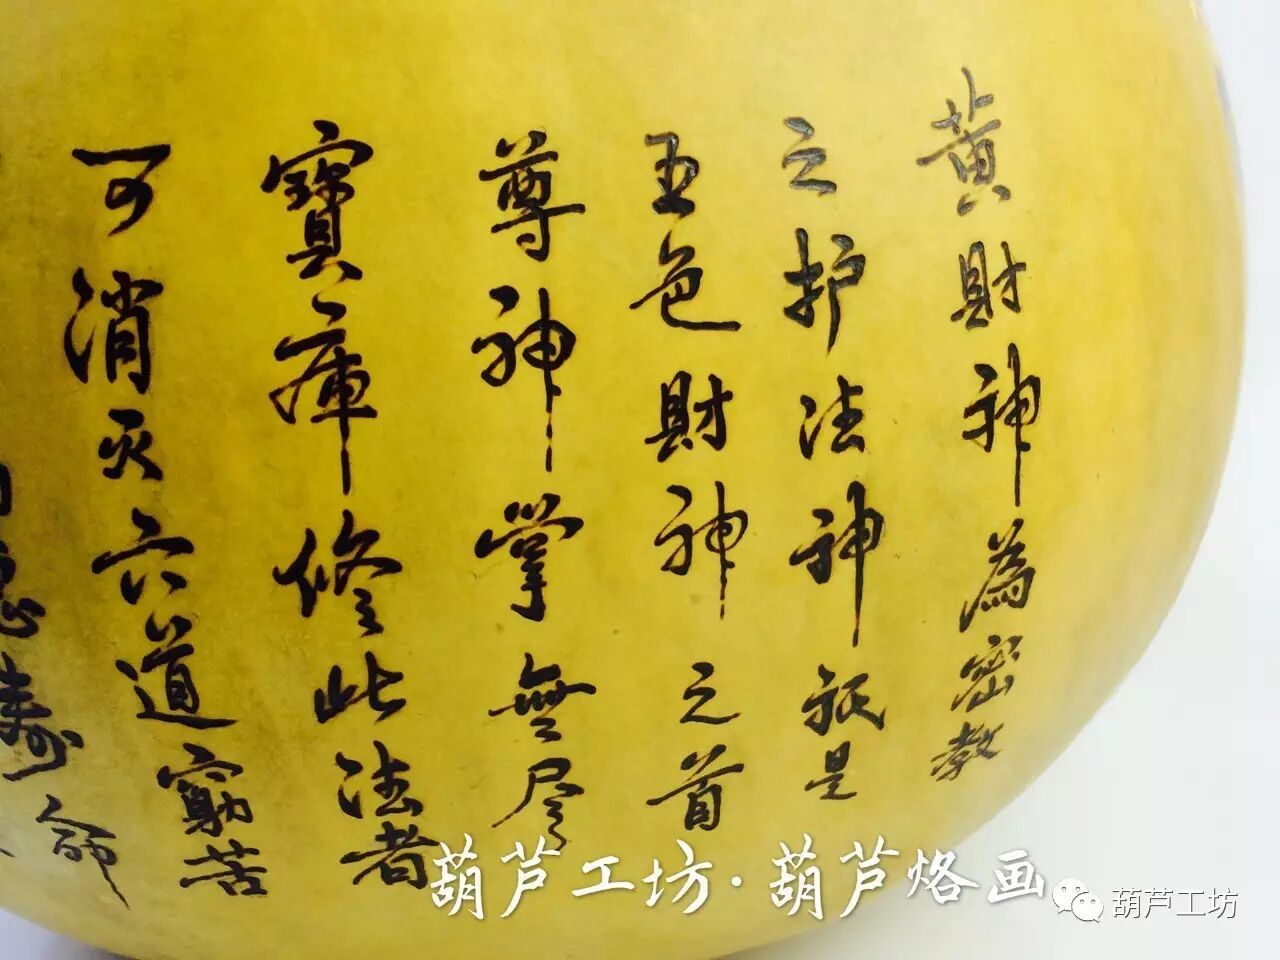 黄財神為密教
之护法神祇是
五色財神之首
尊神掌無尽
寳庫修此法者
可消灭六道窮苦
寿命
葫芦工坊·葫芦烙画
葫芦工坊